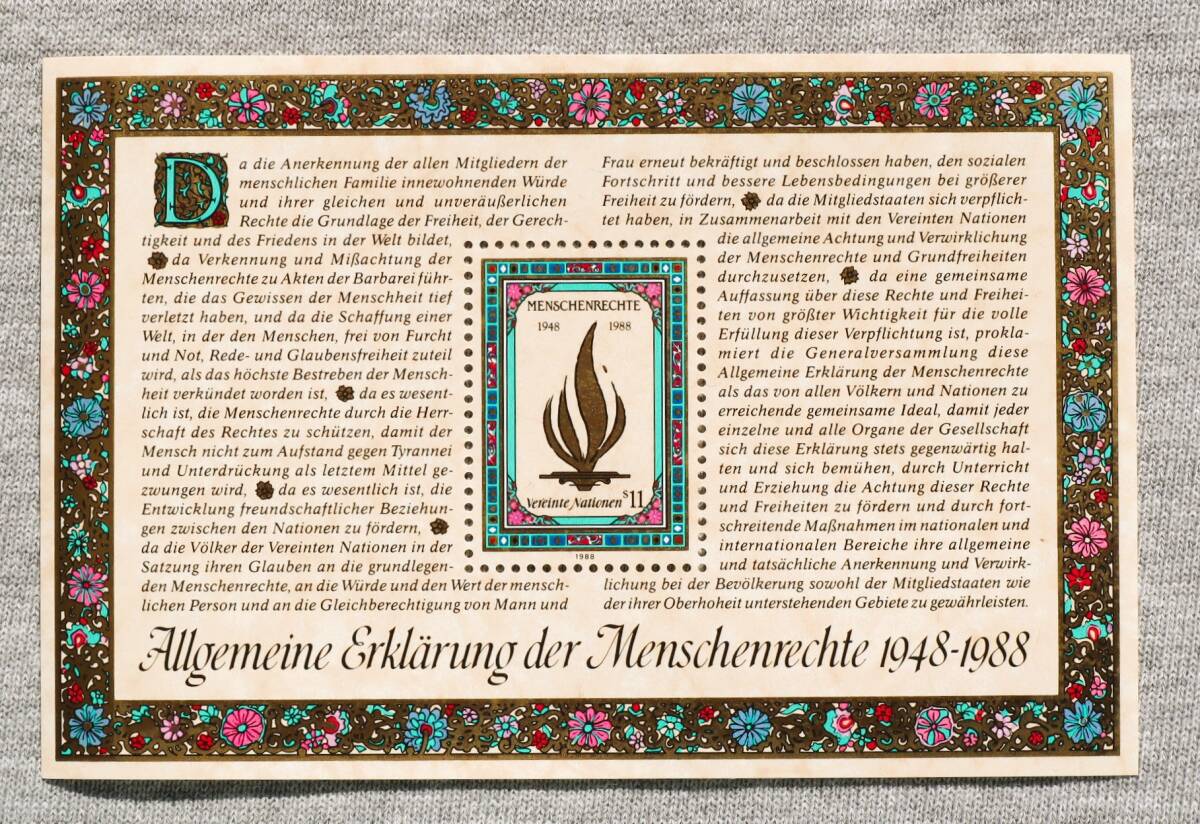 Da die Anerkennung der allen Mitgliedern der
menschlichen Familie innewohnenden Würde
und ihrer gleichen und unveräußerlichen
Rechte die Grundlage der Freiheit, der Gerech-
tigkeit und des Friedens in der Welt bildet,
da Verkennung und Mißachtung der
Menschenrechte zu Akten der Barbarei führ-
ten, die das Gewissen der Menschheit tief
verletzt haben, und da die Schaffung einer
Welt, in der den Menschen, frei von Furcht
und Not, Rede- und Glaubensfreiheit zuteil
wird, als das höchste Bestreben der Mensch-
heit verkündet worden ist, da es wesent-
lich ist, die Menschenrechte durch die Herr-
schaft des Rechtes zu schützen, damit der
Mensch nicht zum Aufstand gegen Tyrannei
und Unterdrückung als letztem Mittel ge-
zwungen wird, da es wesentlich ist, die
Entwicklung freundschaftlicher Beziehun-
gen zwischen den Nationen zu fördern,
da die Völker der Vereinten Nationen in der
Satzung ihren Glauben an die grundlegen-
den Menschenrechte, an die Würde und den Wert der mensch-
lichen Person und an die Gleichberechtigung von Mann und
Frau erneut bekräftigt und beschlossen haben, den sozialen
Fortschritt und bessere Lebensbedingungen bei größerer
Freiheit zu fördern, da die Mitgliedstaaten sich verpflich-
tet haben, in Zusammenarbeit mit den Vereinten Nationen
die allgemeine Achtung und Verwirklichung
der Menschenrechte und Grundfreiheiten
durchzusetzen, da eine gemeinsame
Auffassung über diese Rechte und Freihei-
ten von größter Wichtigkeit für die volle
Erfüllung dieser Verpflichtung ist, prokla-
miert die Generalversammlung diese
Allgemeine Erklärung der Menschenrechte
als das von allen Völkern und Nationen zu
erreichende gemeinsame Ideal, damit jeder
einzelne und alle Organe der Gesellschaft
sich diese Erklärung stets gegenwärtig hal-
ten und sich bemühen, durch Unterricht
und Erziehung die Achtung dieser Rechte
und Freiheiten zu fördern und durch fort-
schreitende Maßnahmen im nationalen und
internationalen Bereiche ihre allgemeine
und tatsächliche Anerkennung und Verwirk-
lichung bei der Bevölkerung sowohl der Mitgliedstaaten wie
der ihrer Oberhoheit unterstehenden Gebiete zu gewährleisten.
MENSCHENRECHTE
1948 1988
Vereinte Nationen $11
1988
Allgemeine Erklärung der Menschenrechte 1948-1988